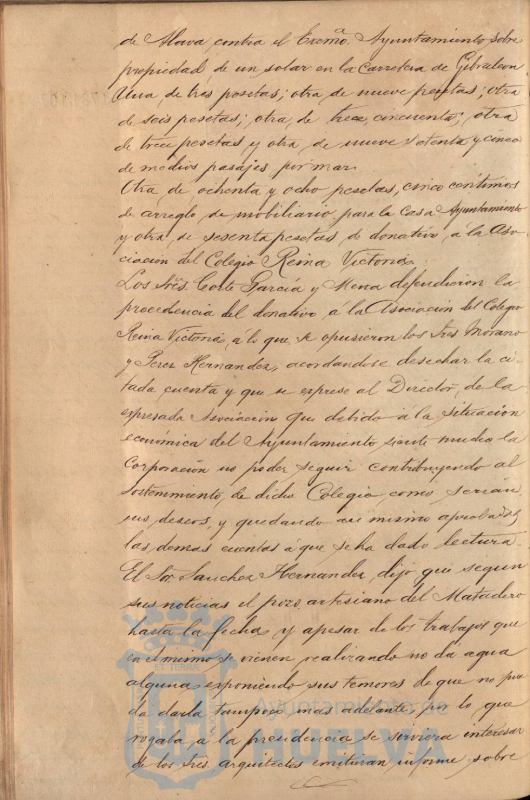 de Alava contra el Excmo. Ayuntamiento sobre
propiedad de un solar en la carretera de Gibraleon
Una, de tres pesetas; otra de nueve pesetas; otra
de seis pesetas; otra, de trece, cincuenta; otra
de trece pesetas y otra de nueve setenta y cinco
de medios pasajes por mar.
Otra de ochenta y ocho pesetas, cinco centimos
de arreglo de mobiliario para la Casa Ayuntamiento
y otra de sesenta pesetas, de donativo, a la Aso-
ciacion del Colegio Reina Victoria.
Los Sres. Corte Garcia y Mena defendieron la
procedencia del donativo a la Asociacion del Colegio
Reina Victoria, á lo que se opusieron los Sres Morano
y Perez Hernandez, acordandose desechar la ci-
tada cuenta y que se exprese al Director, de la
expresada Asociación que debido á la situacion
económica del Ayuntamiento siente mucho la
Corporación no poder seguir contribuyendo al
sostenimiento, de dicho Colegio como serian
sus, deseos, y quedando asi mismo aprobadas
las demas cuentas á que se ha dado lectura.
El Sor Sanchez Hernandez, dijo que segun
sus noticias el pozo artesiano del Matadero
hasta la fecha y apesar de los trabajos que
en el mismo se vienen realizando no da agua
alguna exponiendo sus temores de que no pue-
da darla tampoco mas adelante, por lo que
rogaba, a la presidencia se serviera interesar
de los Sres. arquitectos emitieran, informe, sobre
Ayuntamiento de
HUELVA